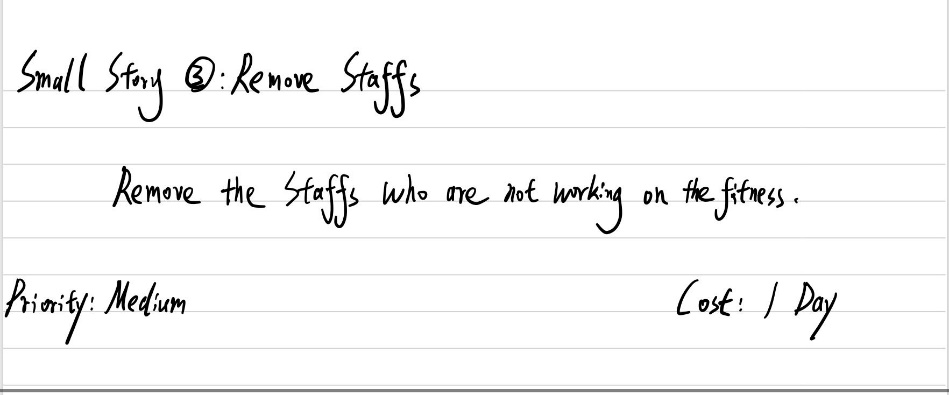 Small Story ③: Remove Staffs
Remove the Staffs who are not working on the fitness.
Priority: Medium Cost: 1 Day